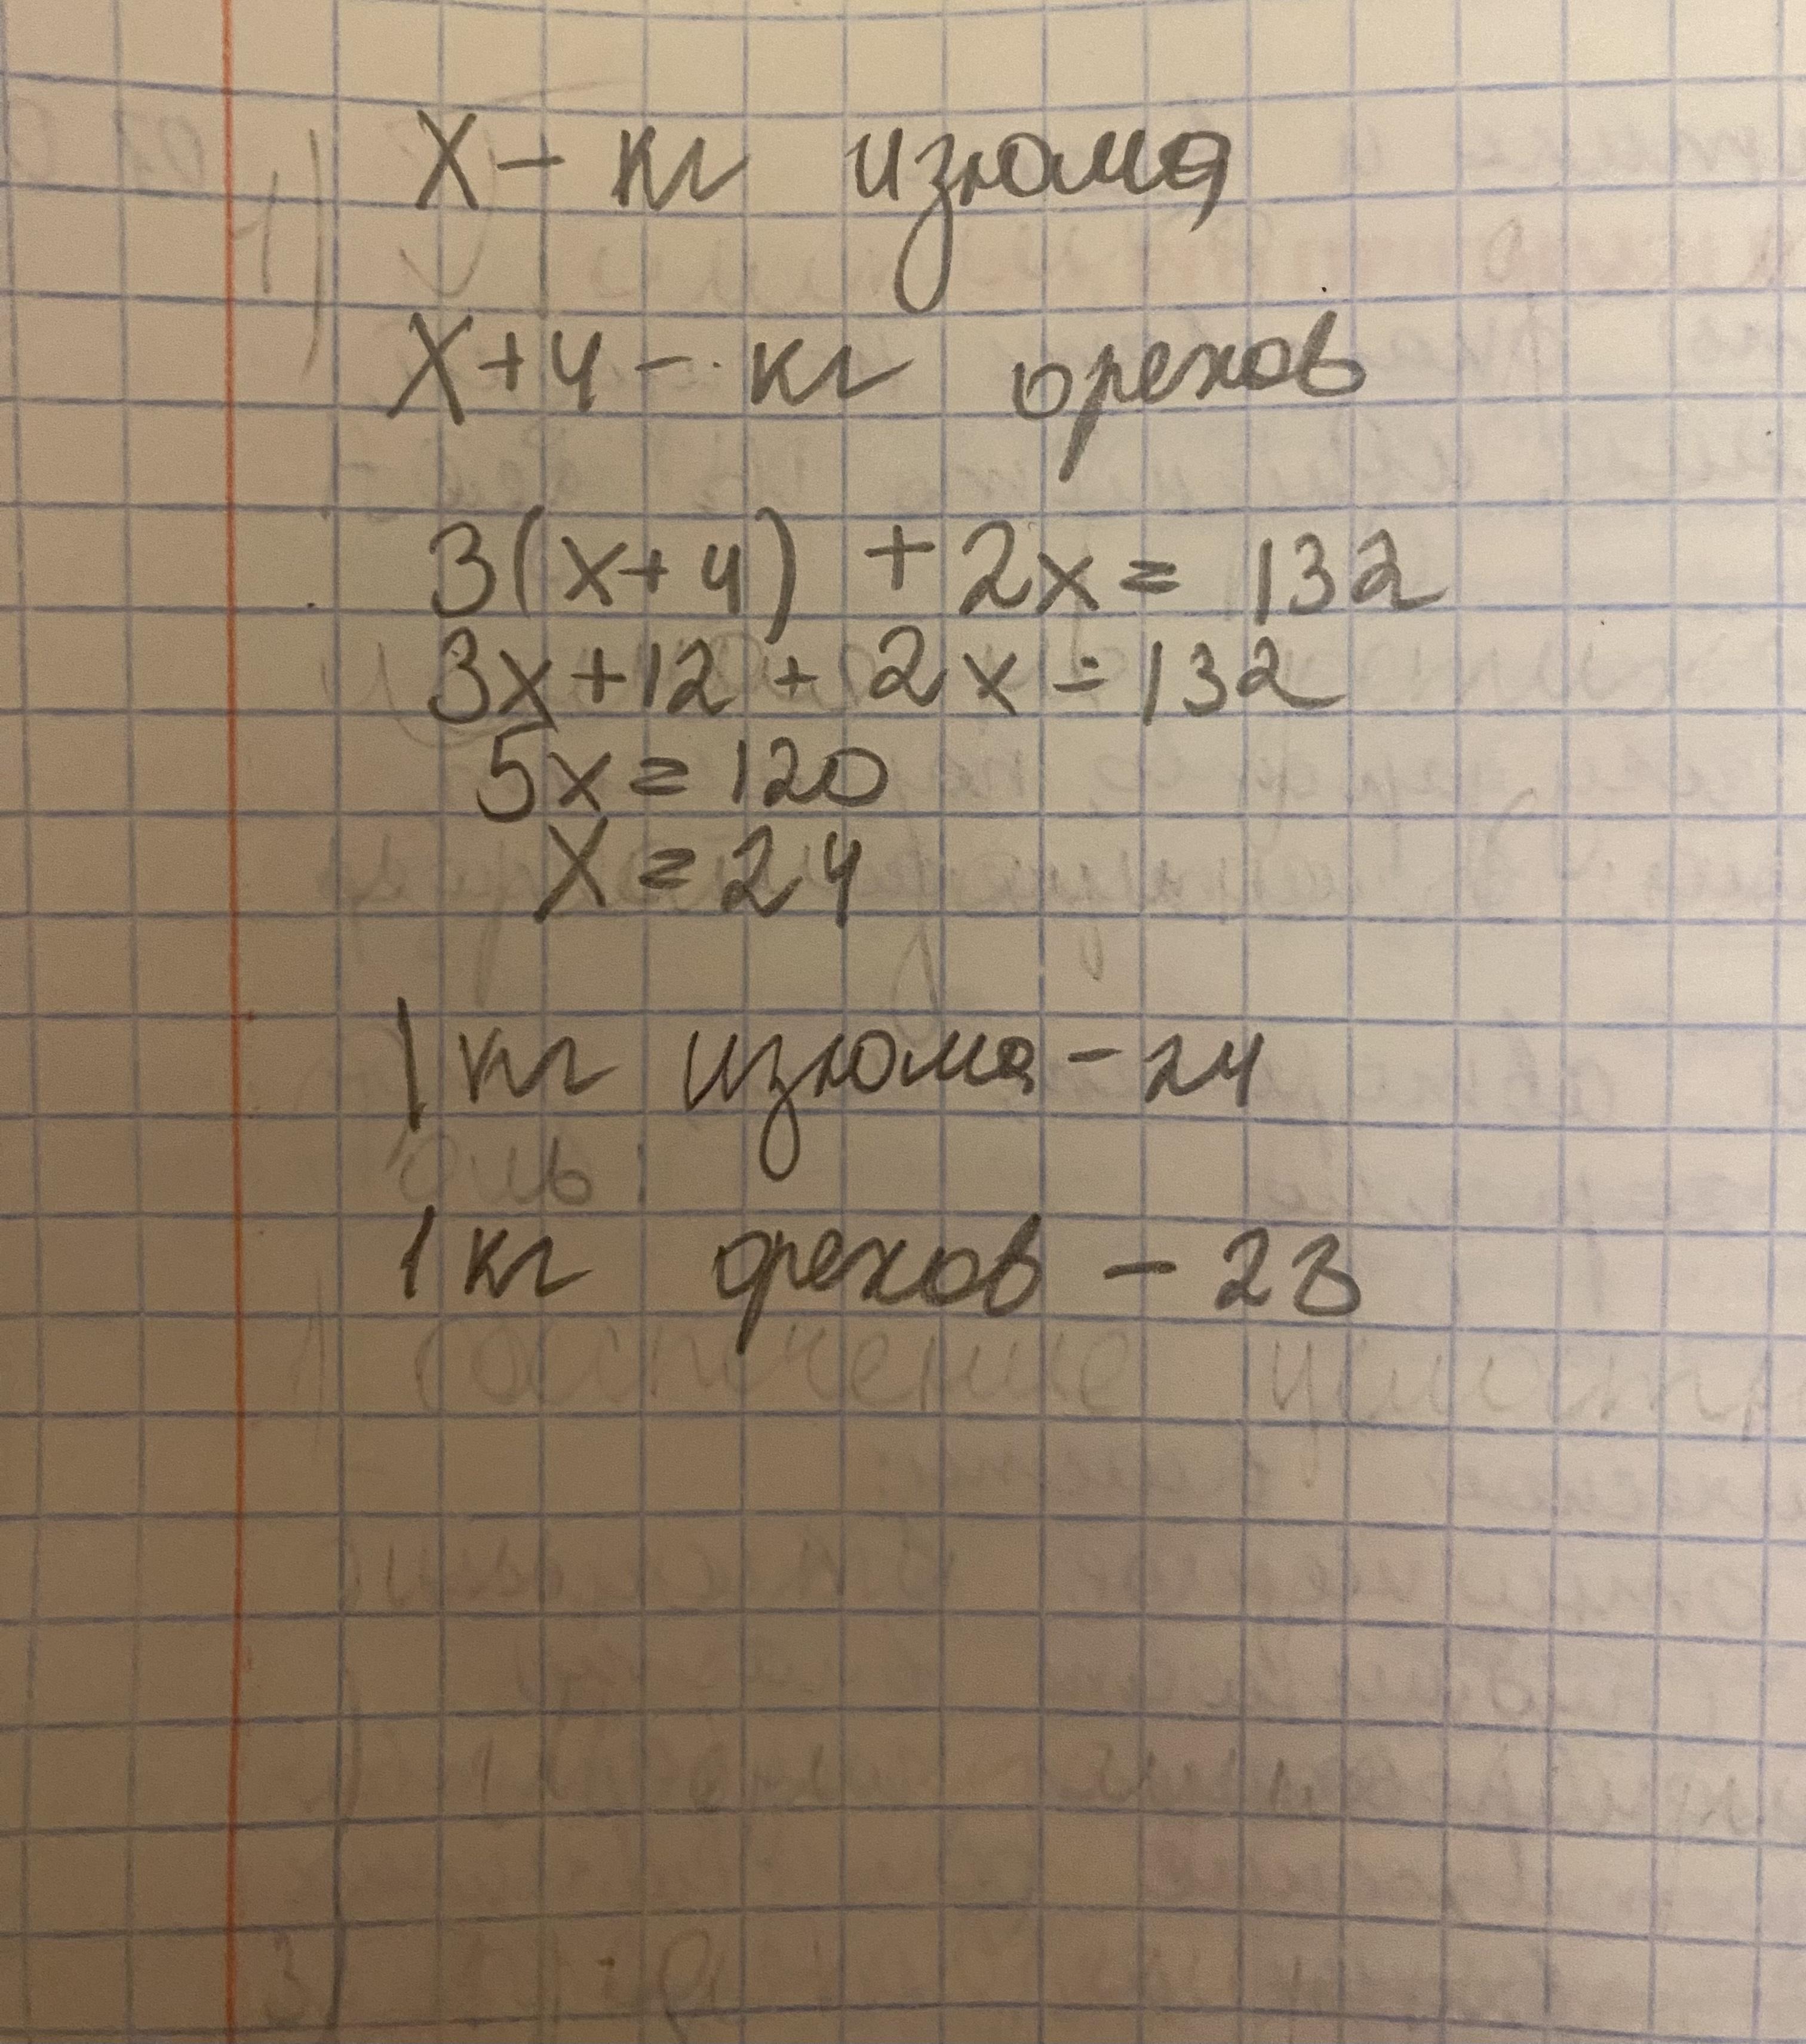 x - кг изюма
x+4 - кг орехов
3(x+4) + 2x = 132
3x+12 + 2x = 132
5x = 120
x = 24
1 кг изюма - 24
1 кг орехов - 28